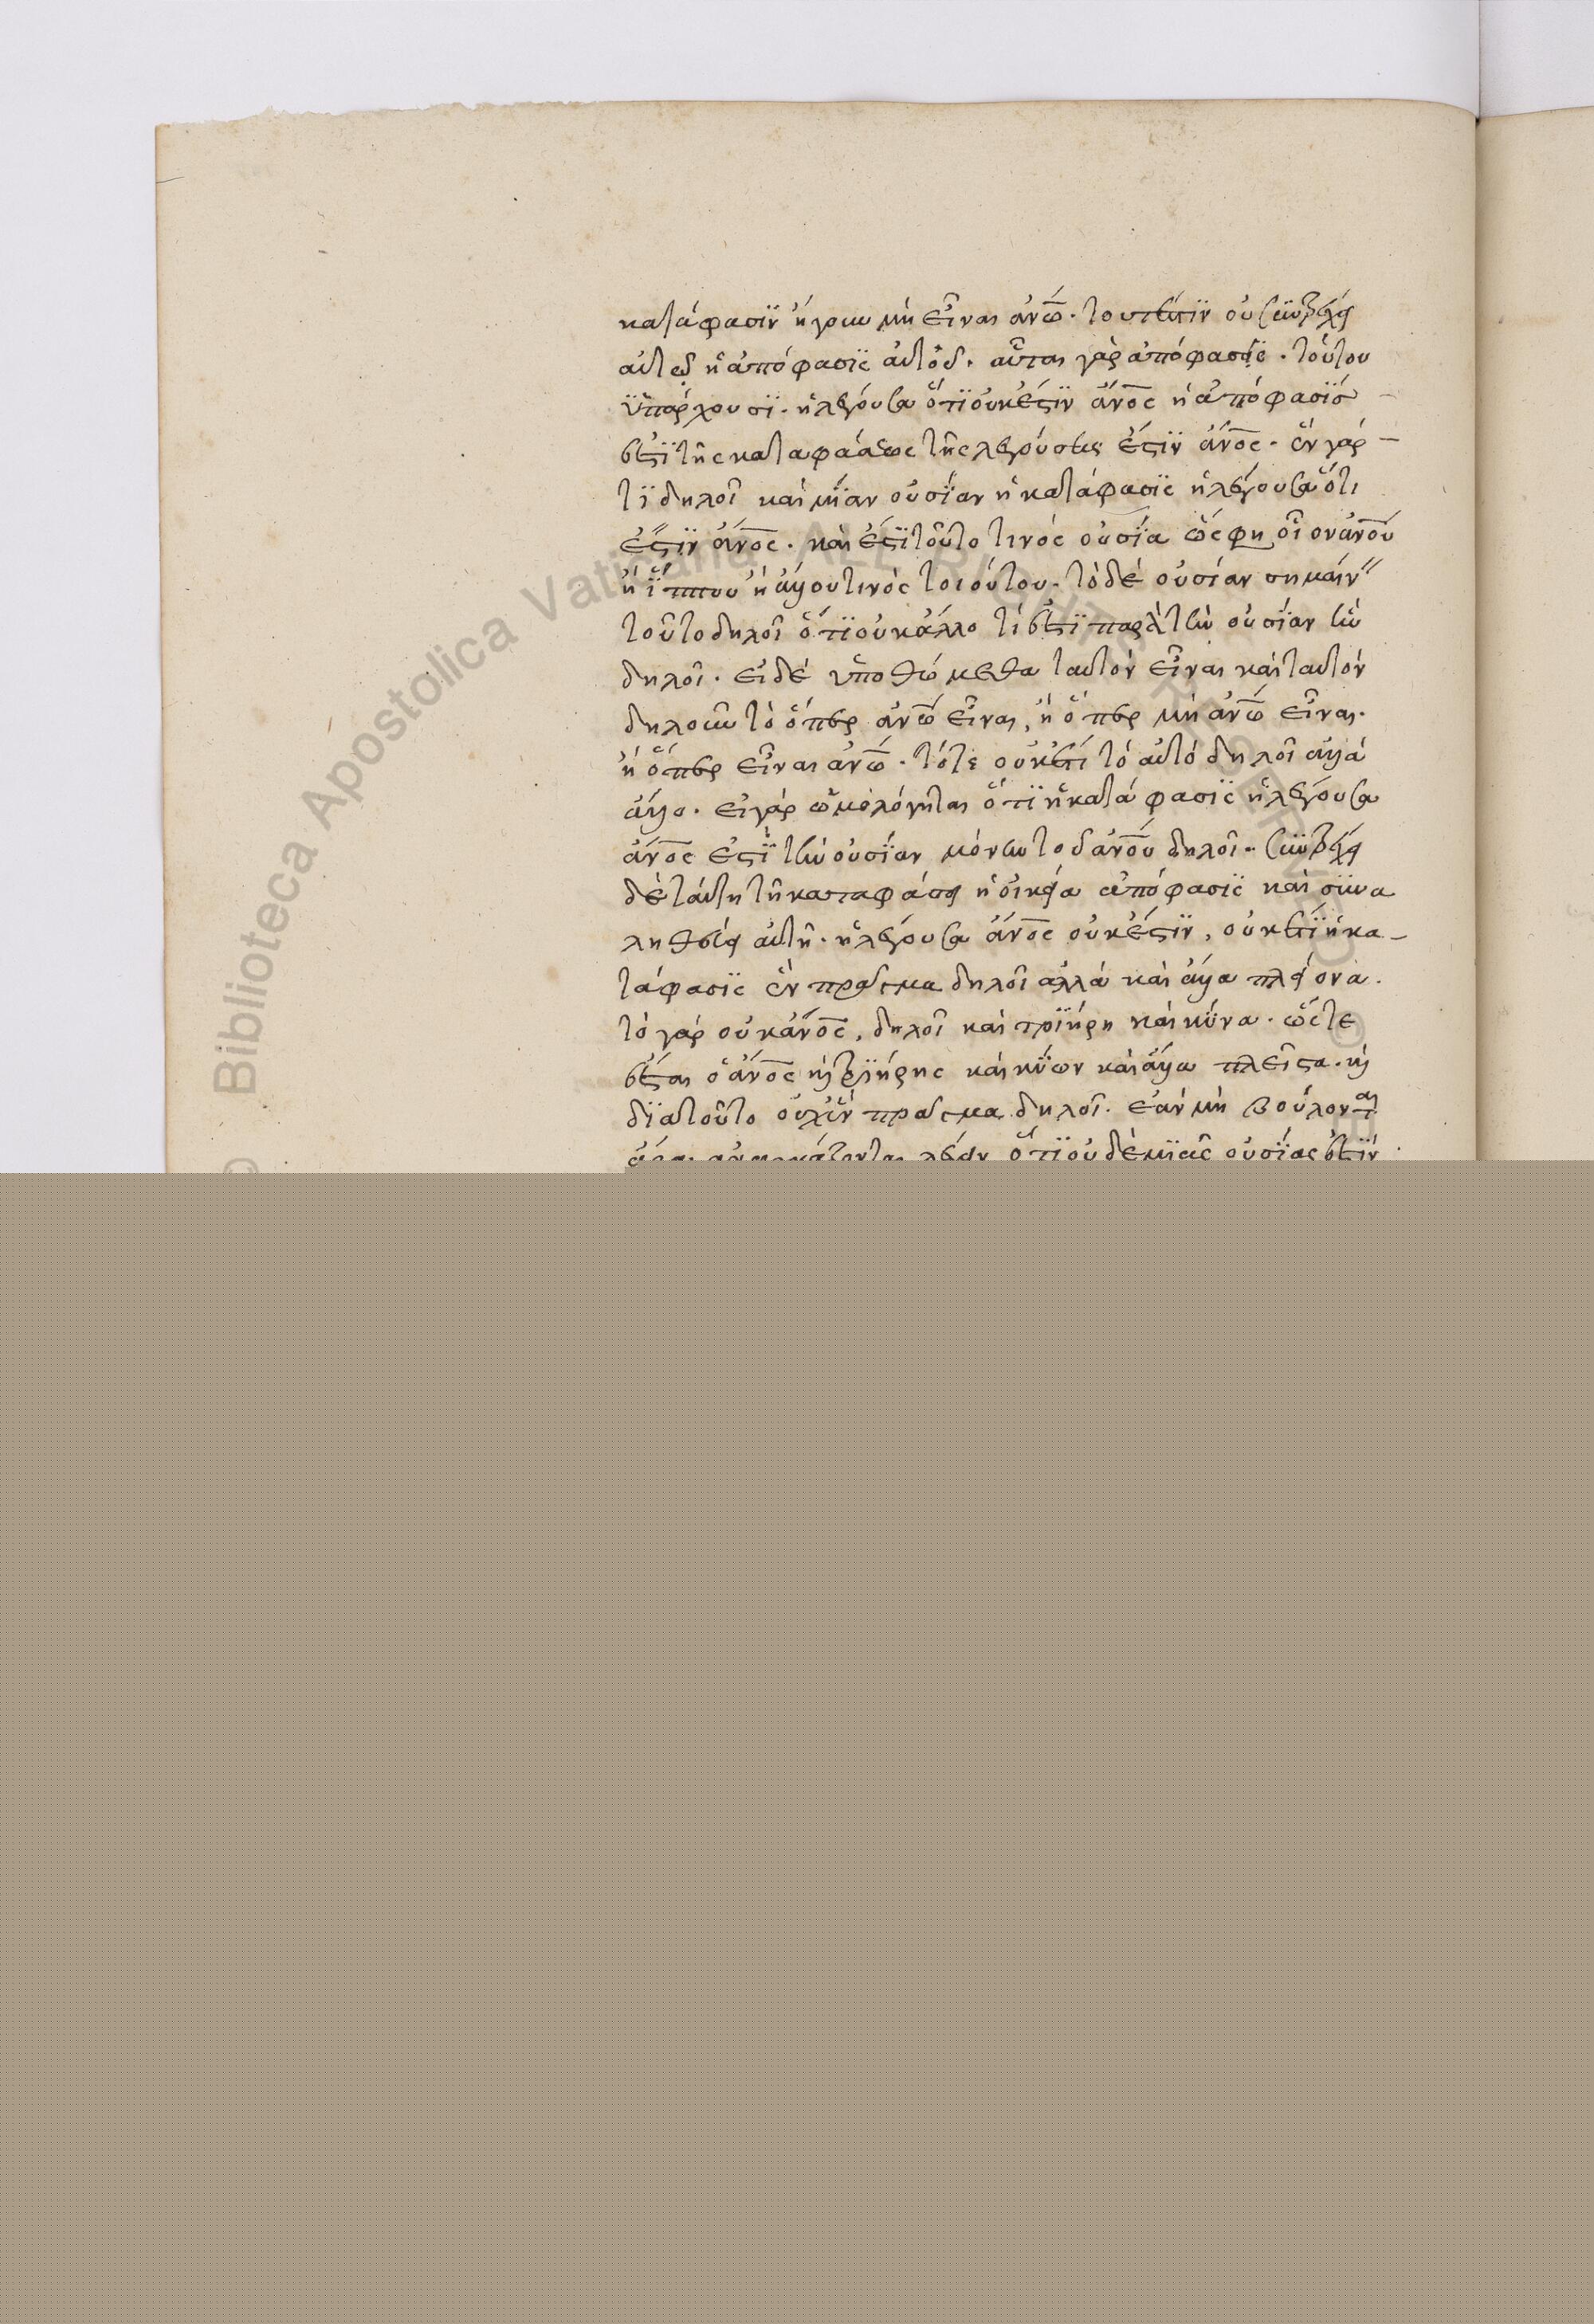 καταφασιν ήγουν μὴ εἶναι ἀνῶ. τουτέστιν οὐ συντρέχει
αὐτῷ ἡ ἀπόφασις αὐτοῦ. αὗται γὰρ ἀπόφασις. τούτου
ὑπάρχουσι. ἡ λέγουσα ὅτι οὐκ ἔστιν ἄνος ἡ ἀπόφασίς
ἐστι τῆς καταφάσεως τῆς λεγούσης ἔστιν ἄνος. ἓν γάρ
τι δηλοῖ καὶ μίαν οὐσίαν ἡ κατάφασις ἡ λέγουσα ὅτι
ἔστιν ἄνος. καὶ ἔστι τοῦτο τινὸς οὐσία ὥς φη οἷον ἀνου
ἢ ἵππου ἢ ἄλλου τινὸς τοιούτου. τὸ δὲ οὐσίαν σημαίν
τοῦτο δηλοῖ ὅτι οὐκ ἄλλο τί ἐστι παρὰ τὴν οὐσίαν ἣν
δηλοῖ. εἰ δὲ ὑποθώμεθα ταυτὸν εἶναι καὶ ταυτὸν
δηλοῦν τὸ ὅπερ ἀνῶ εἶναι, ἢ ὅπερ μὴ ἀνῶ εἶναι.
ἢ ὅπερ εἶναι ἀνῶ. τότε οὐκέτι τὸ αὐτὸ δηλοῖ ἀλλὰ
ἄλλο. εἰ γὰρ ὡμολόγηται ὅτι ἡ κατάφασις ἡ λέγουσα
ἄνος ἐστὶ τὴν οὐσίαν μόνην τοῦ ἀνου δηλοῖ. συντρέχει
δὲ ταύτη τῇ καταφάσει ἡ οἰκεία ἀπόφασις καὶ συνα
ληθεύει αὐτῇ. ἡ λέγουσα ἄνος οὐκ ἔστιν, οὐκέτι ἡ κα-
τάφασις ἓν πρᾶγμα δηλοῖ ἀλλὰ καὶ ἄλλα πλείονα.
τὸ γὰρ οὐκ ἄνος, δηλοῖ καὶ τριήρη καὶ κύνα. ὥστε
ἔσται ὁ ἄνος καὶ τριήρης καὶ κύων καὶ ἄλλα πλεῖστα. καὶ
διὰ τοῦτο οὐχὶ ἓν πρᾶγμα δηλοῖ. ἐὰν μὴ βούλονται
ἄρα ἀναγκάζονται λέγειν ὅτι οὐδὲ μιᾶς οὐσίας ἐστὶν